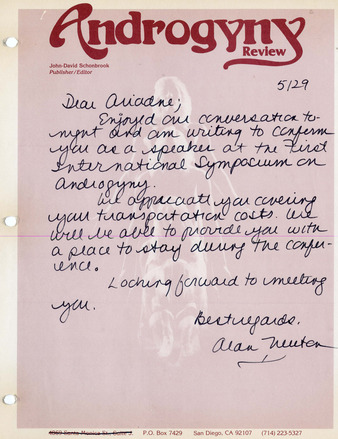 Androgyny
Review
John-David Schonbrook
Publisher/Editor
5/29
Dear Ariadne;
Enjoyed our conversation to-
night and am writing to conferm
you as a speaker at the First
International Symposium on
Androgyny.
We appreciate you covering
your transportation costs. We
will be able to provide you with
a place to stay during the confer-
ence.
Looking forward to meeting
you.
Best regards,
Alan Newton
4069 Santa Monica St., Suite J. P.O. Box 7429 San Diego, CA 92107 (714) 223-5327